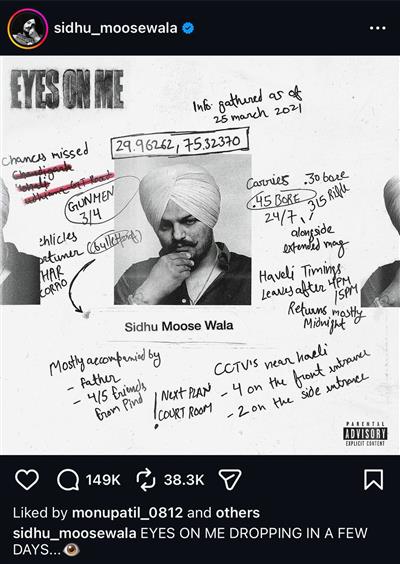 sidhu_moosewala
EYES ON ME
Info gathered as of
25 march 2021
29.96262, 75.32370
Chances missed
Chandigarh
Mohali
GT Road
GUNMEN
3/4
(bulletproof)
HAR
Carries .30 bore
.45 BORE
315 Rifle
24/7
alongside
extended mag
Haveli Timings
Leaves after 4PM
5PM
Returns mostly
Midnight
Sidhu Moose Wala
Mostly accompanied by
- Father
- 4/5 friends
from Pind
! NEXT PLAN
COURT ROOM
CCTV's near haveli
- 4 on the front entrance
- 2 on the side entrance
PARENTAL
ADVISORY
EXPLICIT CONTENT
149K
38.3K
Liked by monupatil_0812 and others
sidhu_moosewala EYES ON ME DROPPING IN A FEW
DAYS...👁️